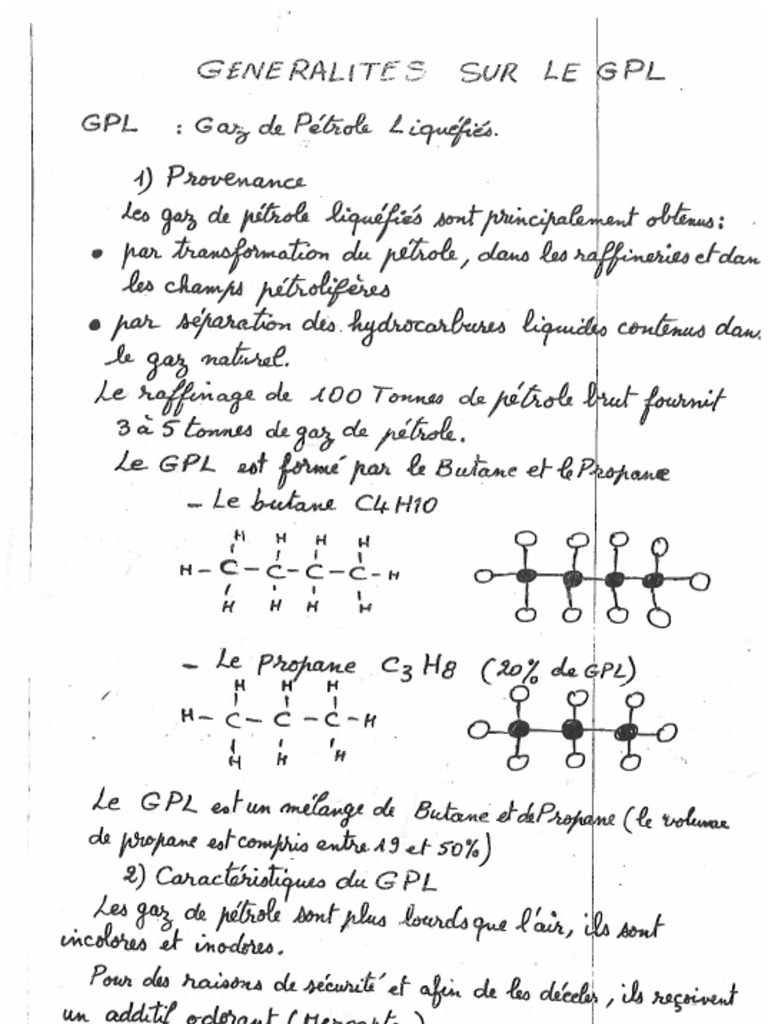 GENERALITES SUR LE GPL
GPL : Gaz de Pétrole Liquéfiés.
1) Provenance
Les gaz de pétrole liquéfiés sont principalement obtenus :
• par transformation du pétrole, dans les raffineries et dan
les champs pétrolifères
• par séparation des hydrocarbures liquides contenus dans
le gaz naturel.
Le raffinage de 100 Tonnes de pétrole brut fournit
3 à 5 tonnes de gaz de pétrole.
Le GPL est formé par le Butane et le Propane
- Le butane C4H10
H H H H
H - C - C - C - C - H
H H H H
- Le Propane C3H8 (20% de GPL)
H H H
H - C - C - C - H
H H H
Le GPL est un mélange de Butane et de Propane (le volume
de propane est compris entre 19 et 50%)
2) Caractéristiques du GPL
Les gaz de pétrole sont plus lourds que l'air, ils sont
incolores et inodores.
Pour des raisons de sécurité et afin de les déceler, ils reçoivent
un additif odorant (